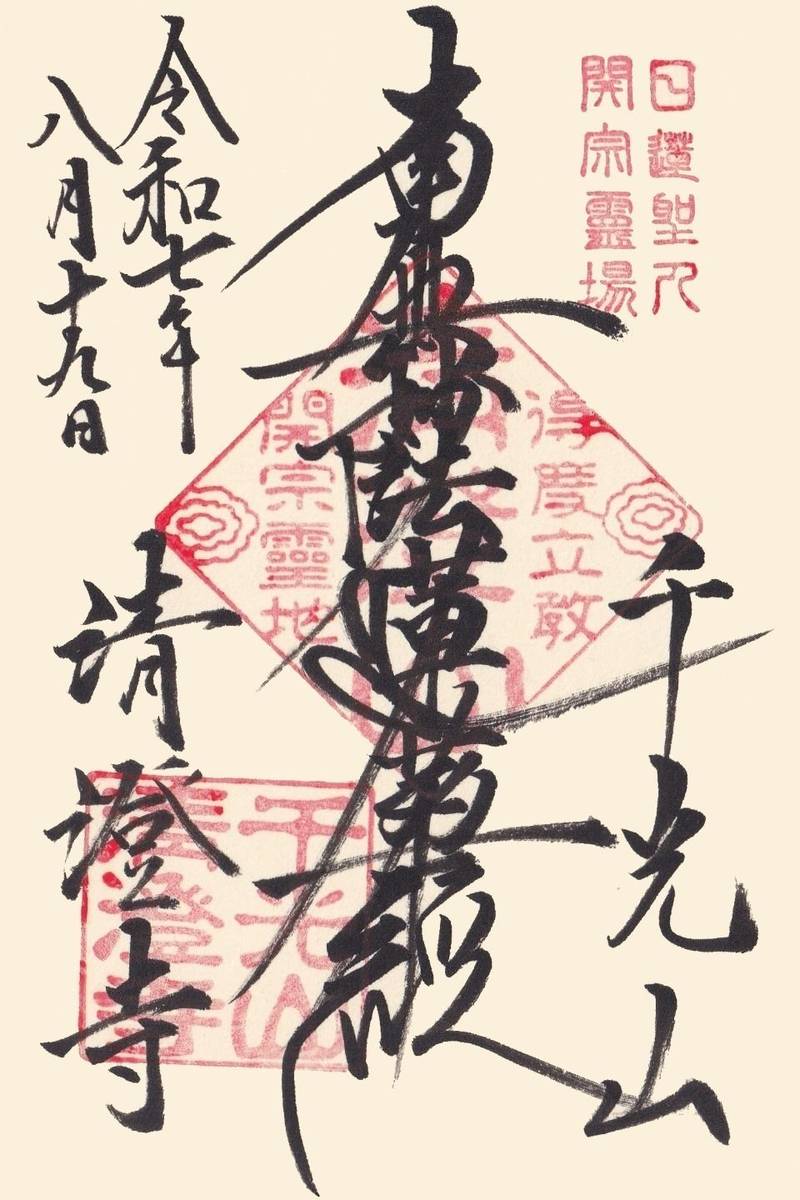 日蓮聖人
開宗靈場
千光山
南無妙法蓮華経
得度立敎
開宗靈地
千光山
清澄寺
令和七年
八月十九日
清澄寺